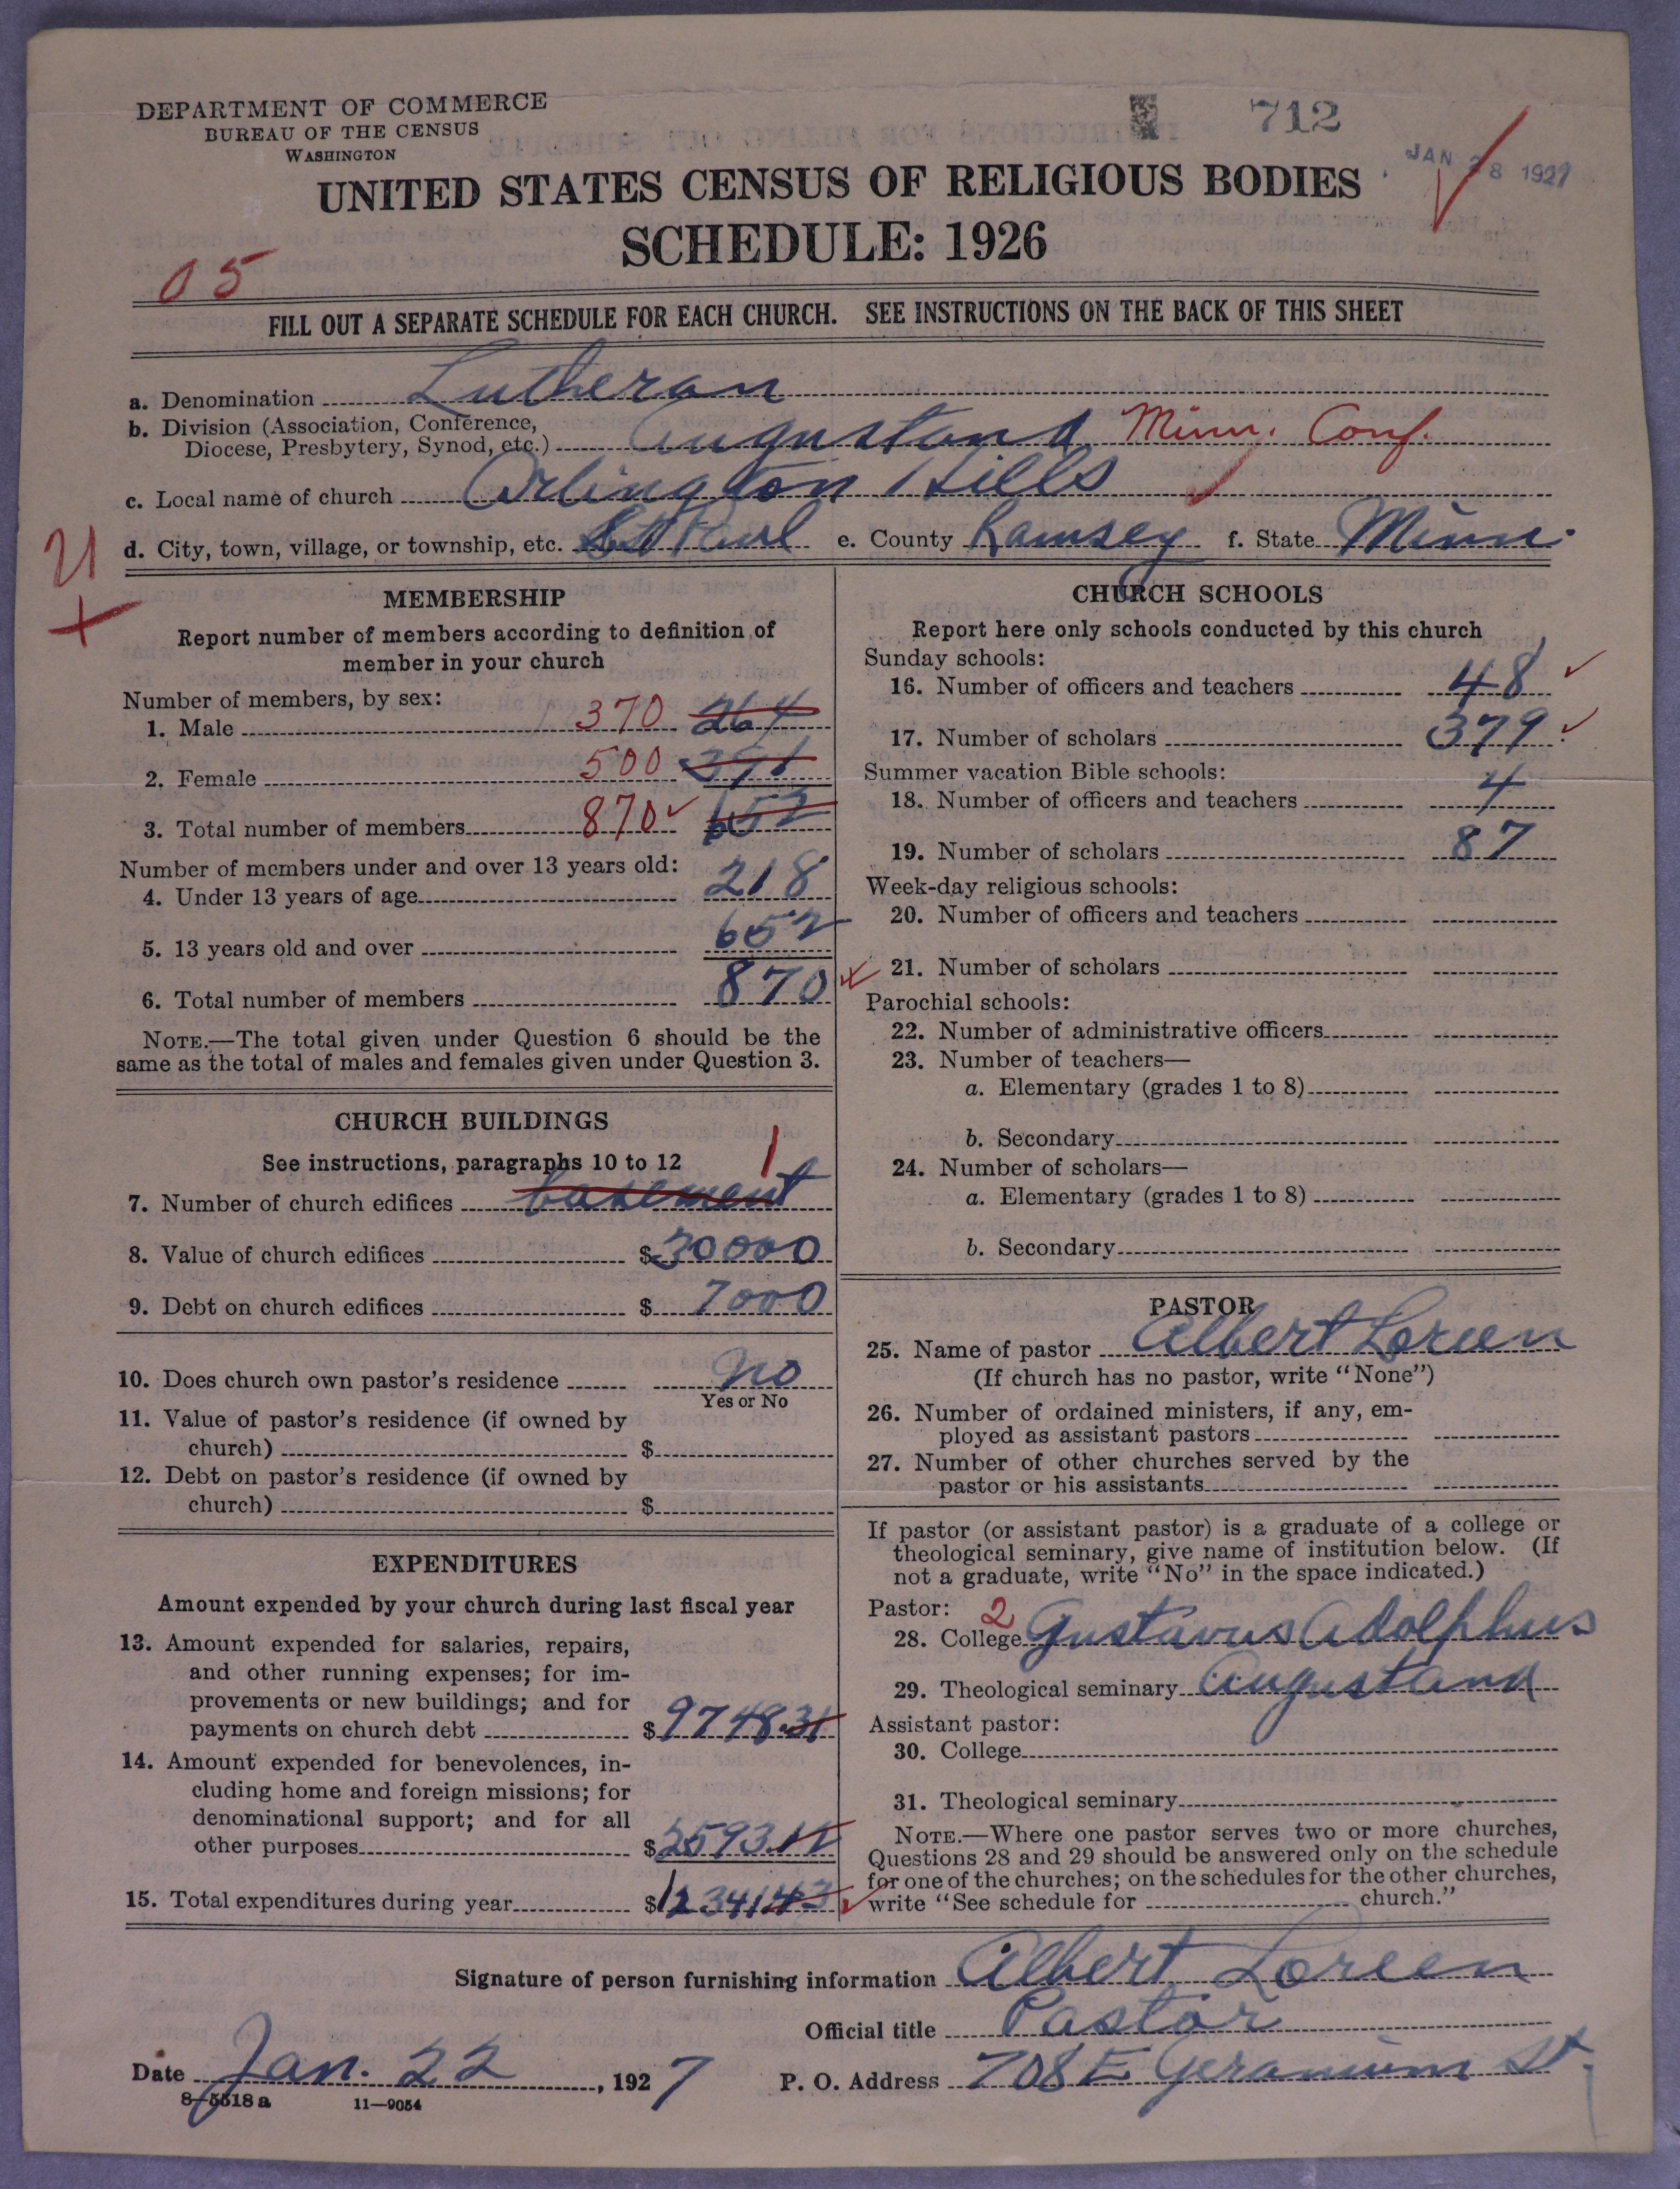 DEPARTMENT OF COMMERCE
BUREAU OF THE CENSUS
WASHINGTON
712
JAN 28 1927
UNITED STATES CENSUS OF RELIGIOUS BODIES
SCHEDULE: 1926
05
FILL OUT A SEPARATE SCHEDULE FOR EACH CHURCH. SEE INSTRUCTIONS ON THE BACK OF THIS SHEET
a. Denomination Lutheran
b. Division (Association, Conference,
Diocese, Presbytery, Synod, etc.) Augustana Minn. Conf.
c. Local name of church Arlington Hills
d. City, town, village, or township, etc. St Paul e. County Ramsey f. State Minn.
MEMBERSHIP
Report number of members according to definition of
member in your church
Number of members, by sex:
1. Male 370 264
2. Female 500 391
3. Total number of members 870 652
Number of members under and over 13 years old:
4. Under 13 years of age 218
5. 13 years old and over 652
6. Total number of members 870
NOTE.—The total given under Question 6 should be the
same as the total of males and females given under Question 3.
CHURCH BUILDINGS
See instructions, paragraphs 10 to 12 1
7. Number of church edifices basement
8. Value of church edifices $30000
9. Debt on church edifices $7000
10. Does church own pastor's residence No
Yes or No
11. Value of pastor's residence (if owned by
church) $
12. Debt on pastor's residence (if owned by
church) $
EXPENDITURES
Amount expended by your church during last fiscal year
13. Amount expended for salaries, repairs,
and other running expenses; for im-
provements or new buildings; and for
payments on church debt $9748.31
14. Amount expended for benevolences, in-
cluding home and foreign missions; for
denominational support; and for all
other purposes $2593.12
15. Total expenditures during year $12341.43
CHURCH SCHOOLS
Report here only schools conducted by this church
Sunday schools:
16. Number of officers and teachers 48
17. Number of scholars 379
Summer vacation Bible schools:
18. Number of officers and teachers 4
19. Number of scholars 87
Week-day religious schools:
20. Number of officers and teachers
21. Number of scholars
Parochial schools:
22. Number of administrative officers
23. Number of teachers—
a. Elementary (grades 1 to 8)
b. Secondary
24. Number of scholars—
a. Elementary (grades 1 to 8)
b. Secondary
PASTOR
25. Name of pastor Albert Loreen
(If church has no pastor, write "None")
26. Number of ordained ministers, if any, em-
ployed as assistant pastors
27. Number of other churches served by the
pastor or his assistants
If pastor (or assistant pastor) is a graduate of a college or
theological seminary, give name of institution below. (If
not a graduate, write "No" in the space indicated.)
Pastor: 2
28. College Gustavus Adolphus
29. Theological seminary Augustana
Assistant pastor:
30. College
31. Theological seminary
NOTE.—Where one pastor serves two or more churches,
Questions 28 and 29 should be answered only on the schedule
for one of the churches; on the schedules for the other churches,
write "See schedule for church."
Signature of person furnishing information Albert Loreen
Official title Pastor
Date Jan. 22, 1927 P. O. Address 708 E Geranium St.
8-5518 a 11—9054